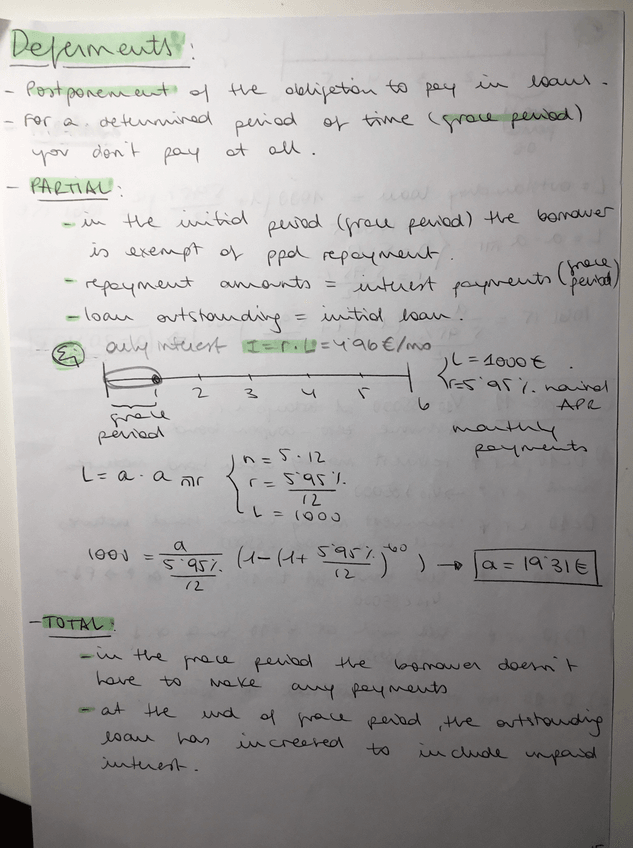 Deferments:
- Postponement of the obligation to pay in loans.
- For a determined period of time (grace period)
you don't pay at all.
- PARTIAL:
- in the initial period (grace period) the borrower
is exempt of ppal repayment.
- repayment amounts = interest payments (grace period)
- loan outstanding = initial loan.
Ej only interest I = r · L = 4'96 €/mo
L = 1000 €
r = 5'95% nominal
APR
monthly
payments
1 2 3 4 5 6
grace
period
L = a · a n¬r
n = 5 · 12
r = 5'95% / 12
L = 1000
1000 = a / (5'95% / 12) (1 - (1 + 5'95% / 12)^-60) → a = 19'31 €
- TOTAL:
- in the grace period the borrower doesn't
have to make any payments
- at the end of grace period, the outstanding
loan has increased to include unpaid
interest.